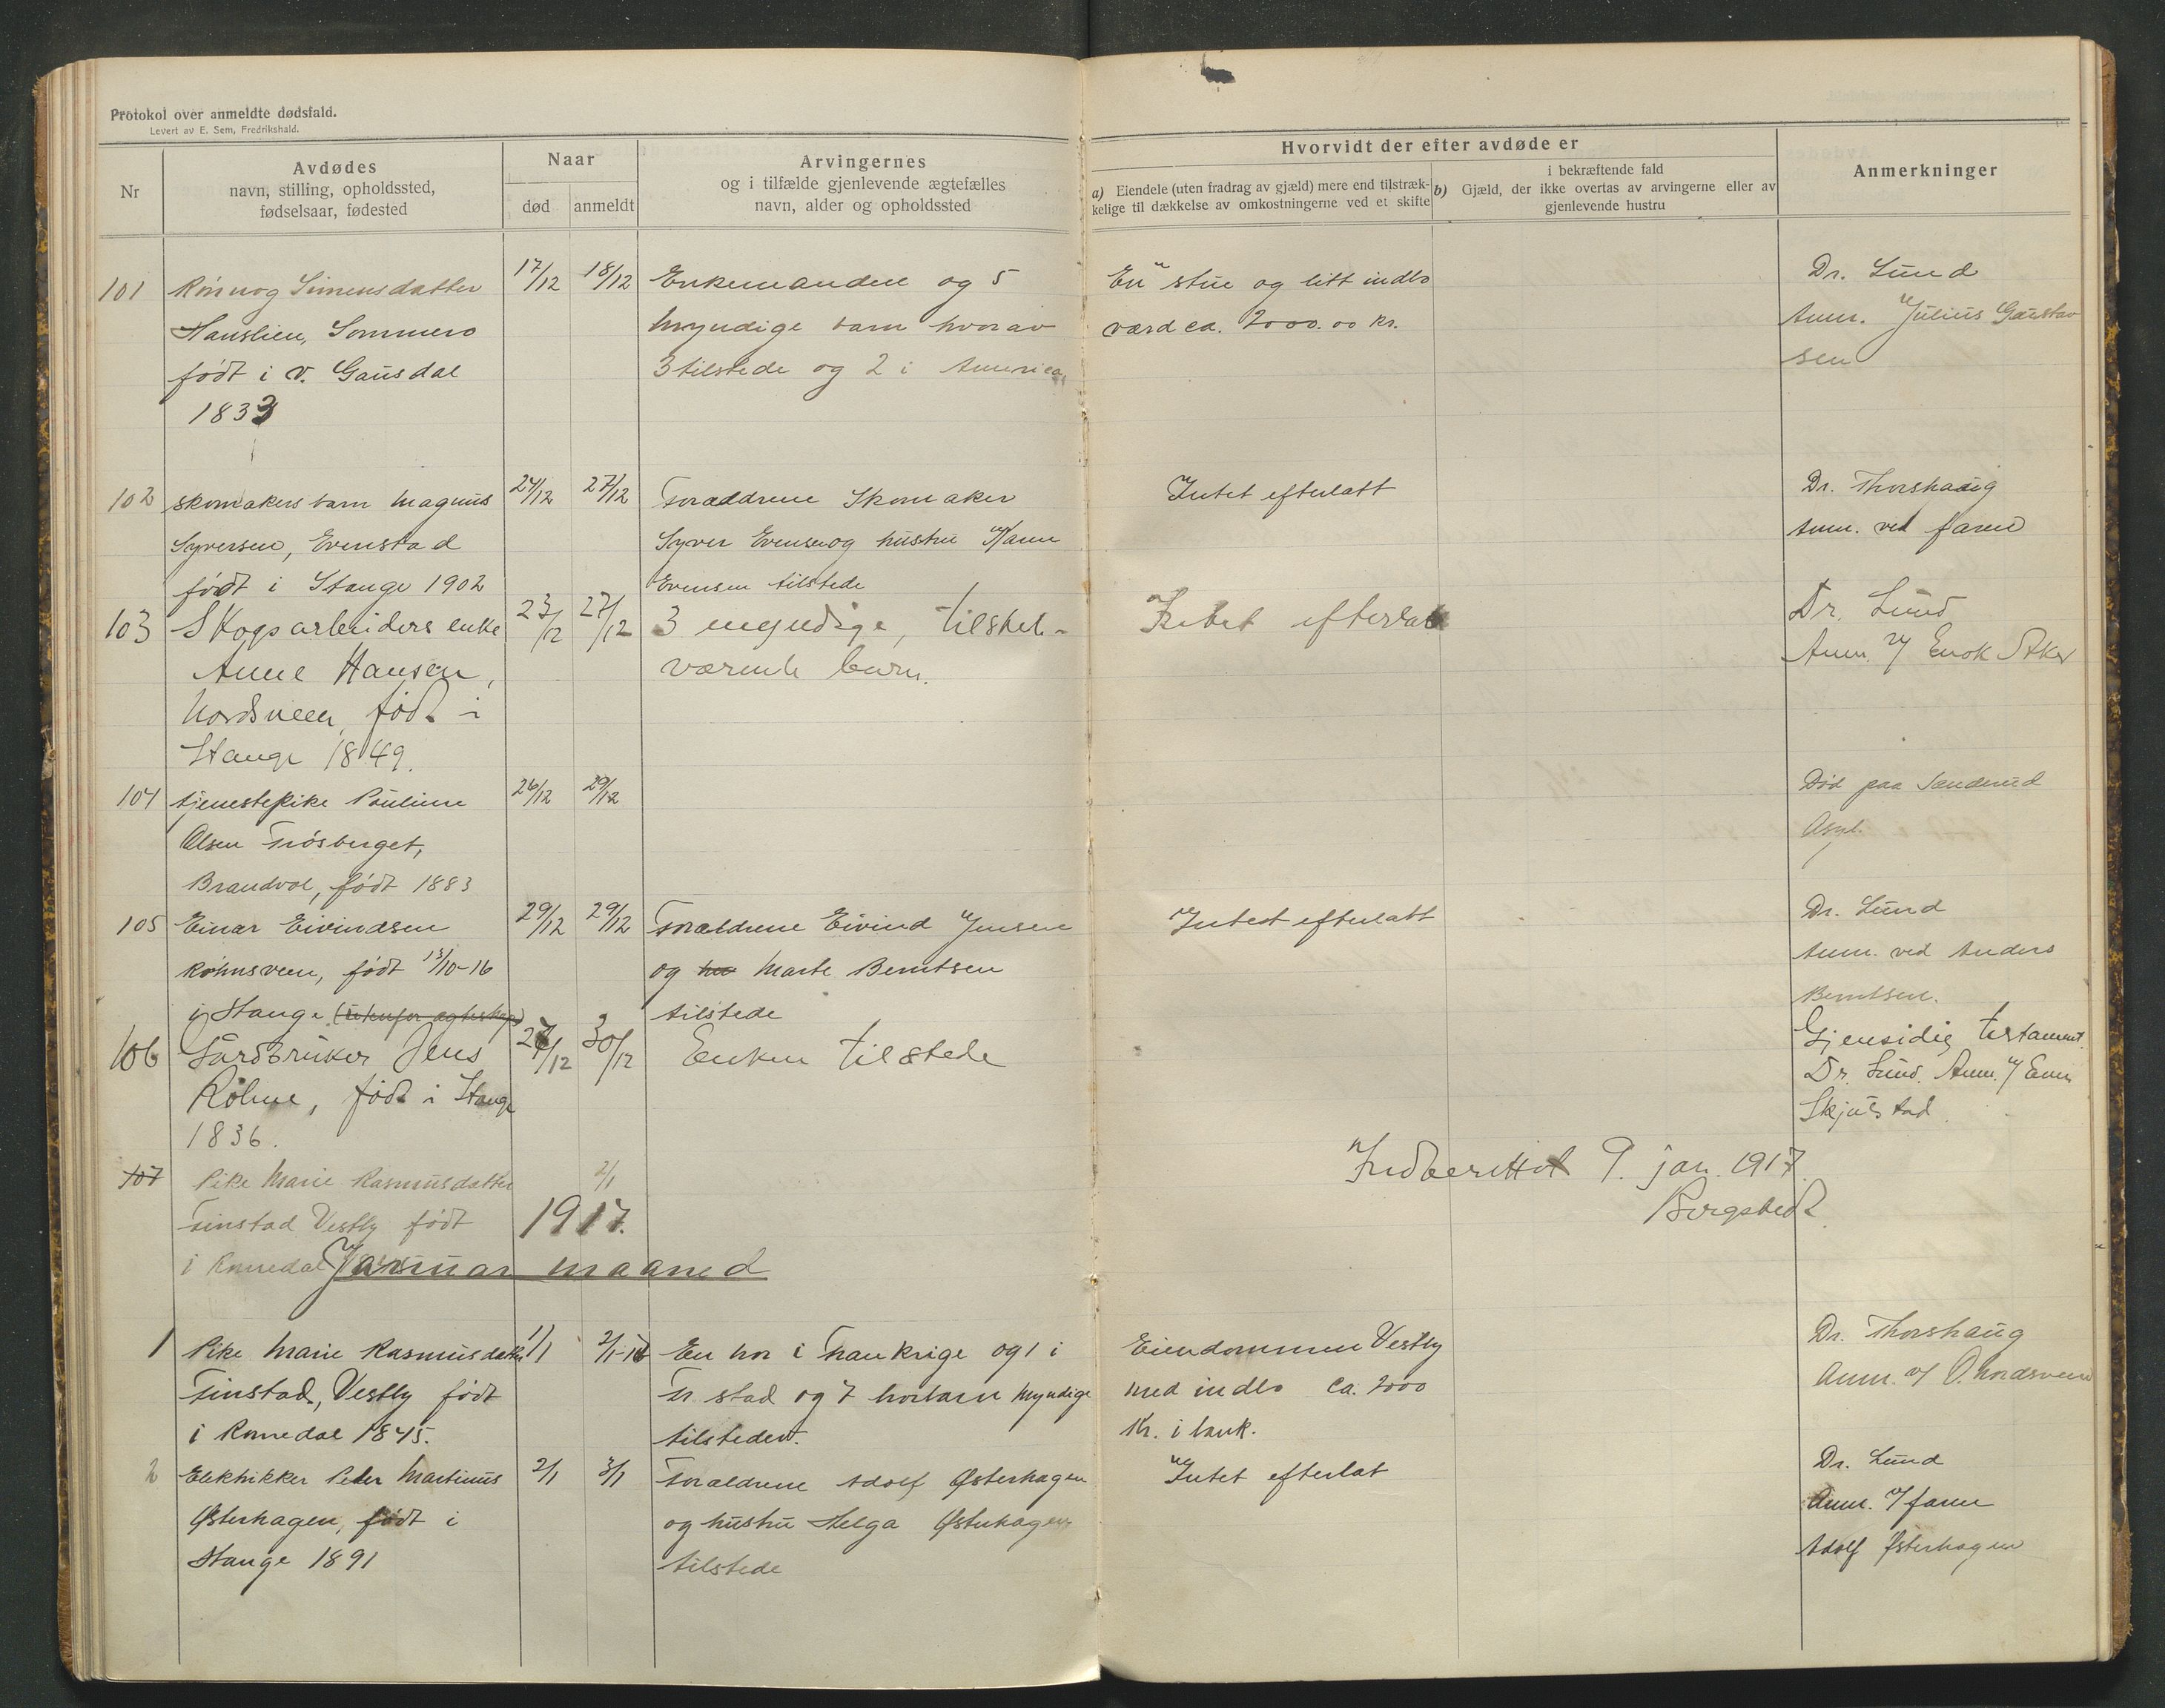 Protokol over anmeldte dødsfald.
Levert av E. Sem, Fredrikshald.
Nr
Avdødes
navn, stilling, opholdssted,
fødselsaar, fødested
Naar
død
anmeldt
Arvingernes
og i tilfælde gjenlevende ægtefælles
navn, alder og opholdssted
Hvorvidt der efter avdøde er
a) Eiendele (uten fradrag av gjæld) mere end tilstræk-
kelige til dækkelse av omkostningerne ved et skifte
i bekræftende fald
b) Gjæld, der ikke overtas av arvingerne eller av
gjenlevende hustru
Anmerkninger
101 Rønnog Simensdatter 17/12 18/12 Enkemanden og 5 En stue og litt indbo Dr. Lund
Hanslien, Sommero myndige barn hvorav værd ca. 2000.00 kr. Anm. Julius Gaustav
født i v. Gausdal 3 tilstede og 2 i America sen
1833
102 skomakers barn Magnus 24/12 27/12 Foræddrene Skomaker Intet efterlatt Dr. Thorshaug
Syversen, Evenstad Syver Evensen og hustru Karen Anm. ved faren
født i Stange 1902 Evensen tilstede
103 Skogsarbeiders enke 23/12 27/12 3 myndige, tilstede- Intet efterlat Dr. Lund
Anne Hansen, værende barn. Anm. v/ Enok Aker
Nordsveen, født i
Stange 1849.
104 tjenestepike Pauline 26/12 29/12 Død paa Sanderud
Olsen Frøsberget, Asyl.
Brandvol, født 1883
105 Einar Eivindsen 29/12 29/12 Forældrene Eivind Jensen Intet efterlatt Dr. Lund
Røhnsveen, født 13/10-16 og Marte Berntsen Anm. ved Anders
i Stange tilstede Berntsen.
106 Gårdbruker Jens 27/12 30/12 Enken tilstede Gjensidig testament.
Røhne, født i Stange Dr. Lund. Anm. v/ Even
1836. Skjulstad
107 Pike Marie Rasmusdatter 2/1 Indberettet 9. jan. 1917.
Finstad Vestby født 1917. Borgstedt
i Romedal Januar maaned
1 Pike Marie Rasmusdatter 1/1 2/1-17 En bror i Frankrige og 1 i Eiendommen Vestby Dr. Thorshaug
Finstad, Vestby født Fr. stad og 7 brorbarn myndige med indbo ca. 2000 Anm. v/ O. Nordsveen
i Romedal 1845. tilstede. Kr. i bank.
2 Elektrikker Peder Martinus 2/1 3/1 Forældrene Adolf Østerhagen Intet efterlat Dr. Lund
Østerhagen, født i og hustru Helga Østerhagen Anm. v/ faren
Stange 1891 tilstede Adolf Østerhagen